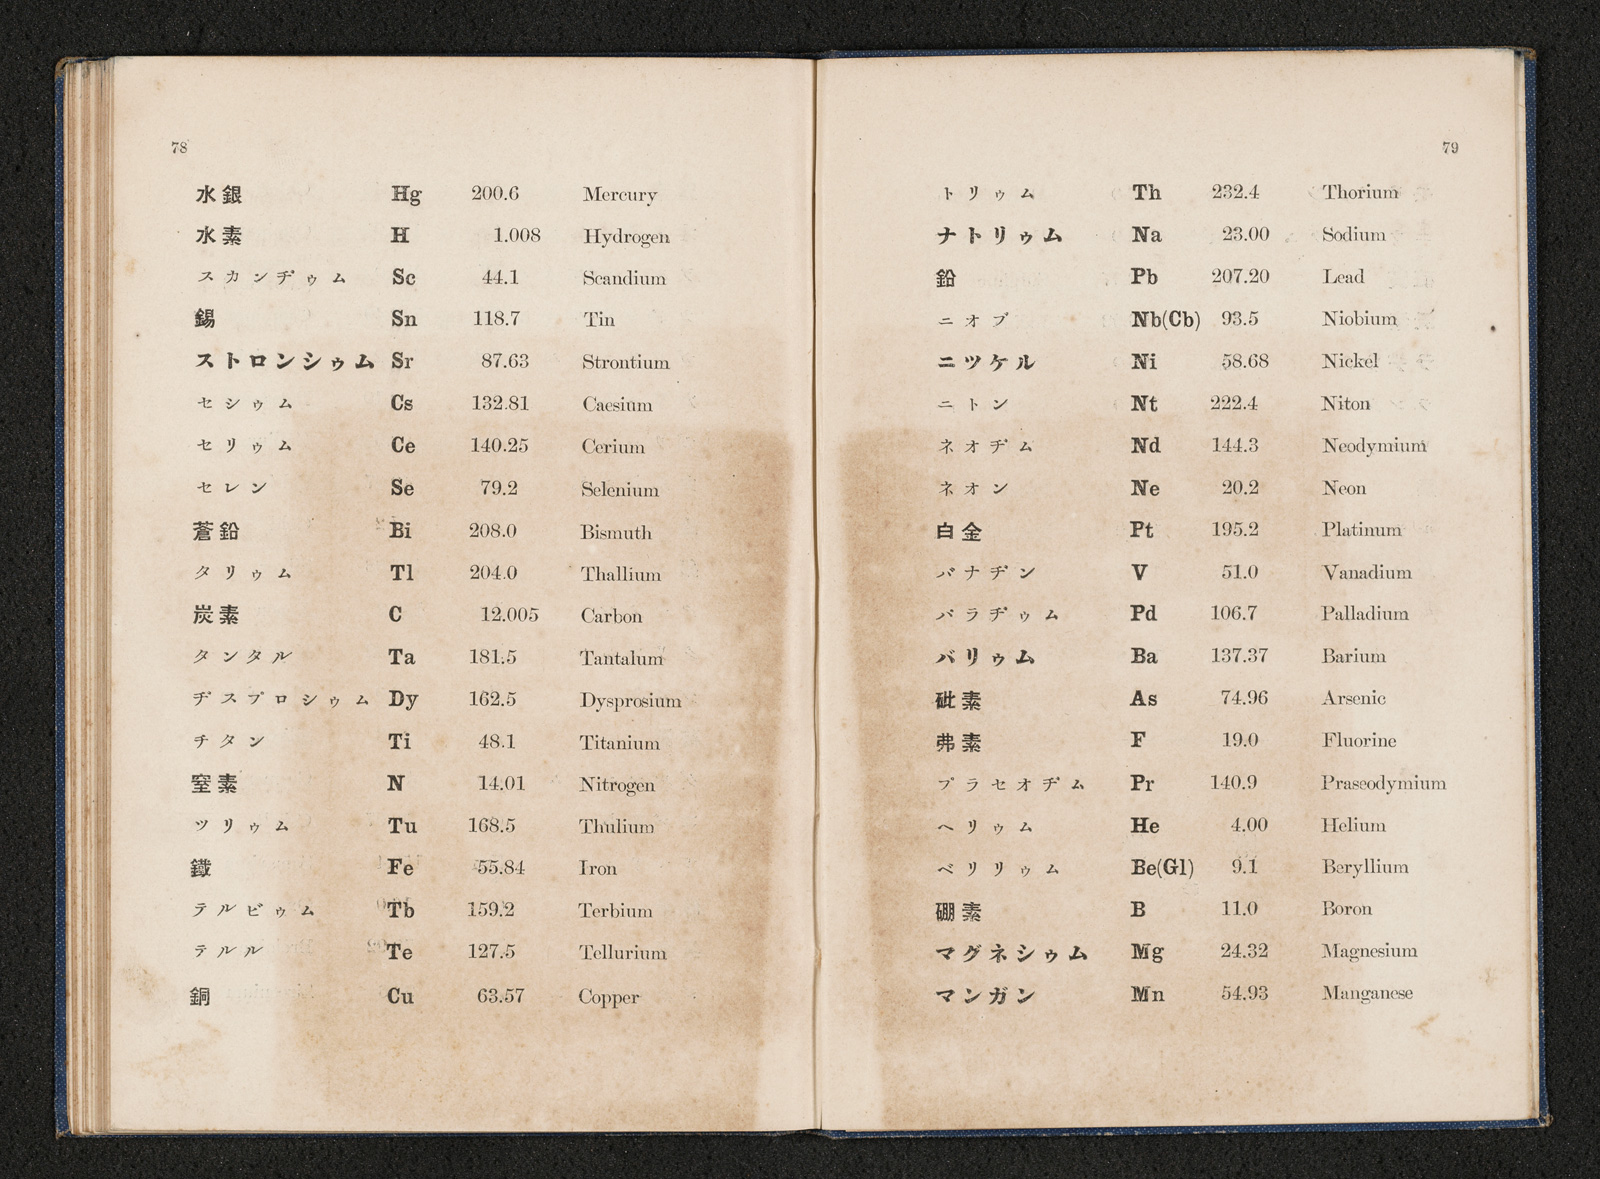 78
水銀 Hg 200.6 Mercury
水素 H 1.008 Hydrogen
スカンヂゥム Sc 44.1 Scandium
錫 Sn 118.7 Tin
ストロンシゥム Sr 87.63 Strontium
セシゥム Cs 132.81 Caesium
セリゥム Ce 140.25 Cerium
セレン Se 79.2 Selenium
蒼鉛 Bi 208.0 Bismuth
タリゥム Tl 204.0 Thallium
炭素 C 12.005 Carbon
タンタル Ta 181.5 Tantalum
ヂスプロシゥム Dy 162.5 Dysprosium
チタン Ti 48.1 Titanium
窒素 N 14.01 Nitrogen
ツリゥム Tu 168.5 Thulium
鐵 Fe 55.84 Iron
テルビゥム Tb 159.2 Terbium
テルル Te 127.5 Tellurium
銅 Cu 63.57 Copper
79
トリゥム Th 232.4 Thorium
ナトリゥム Na 23.00 Sodium
鉛 Pb 207.20 Lead
ニオブ Nb(Cb) 93.5 Niobium
ニツケル Ni 58.68 Nickel
ニトン Nt 222.4 Niton
ネオヂム Nd 144.3 Neodymium
ネオン Ne 20.2 Neon
白金 Pt 195.2 Platinum
バナヂン V 51.0 Vanadium
パラヂゥム Pd 106.7 Palladium
バリゥム Ba 137.37 Barium
砒素 As 74.96 Arsenic
弗素 F 19.0 Fluorine
プラセオヂム Pr 140.9 Praseodymium
ヘリゥム He 4.00 Helium
ベリリゥム Be(Gl) 9.1 Beryllium
硼素 B 11.0 Boron
マグネシゥム Mg 24.32 Magnesium
マンガン Mn 54.93 Manganese